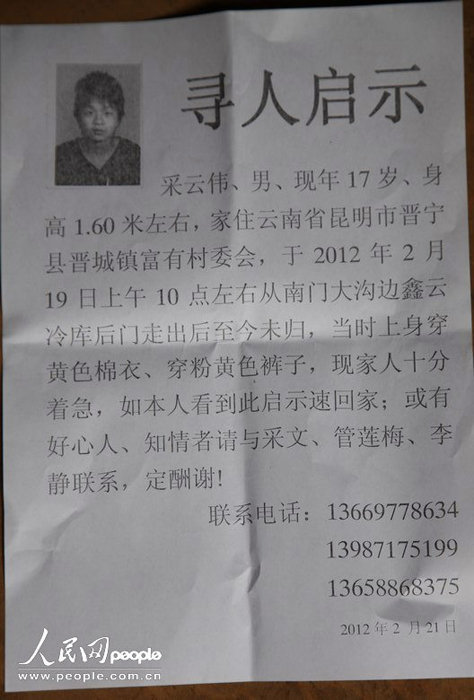 寻人启示
采云伟、男、现年17岁、身
高1.60米左右，家住云南省昆明市晋宁
县晋城镇富有村委会，于2012年2月
19日上午10点左右从南门大沟边鑫云
冷库后门走出后至今未归，当时上身穿
黄色棉衣、穿粉黄色裤子，现家人十分
着急，如本人看到此启示速回家；或有
好心人、知情者请与采文、管莲梅、李
静联系，定酬谢!
联系电话：13669778634
13987175199
13658868375
2012年2月21日
人民网people
www.people.com.cn